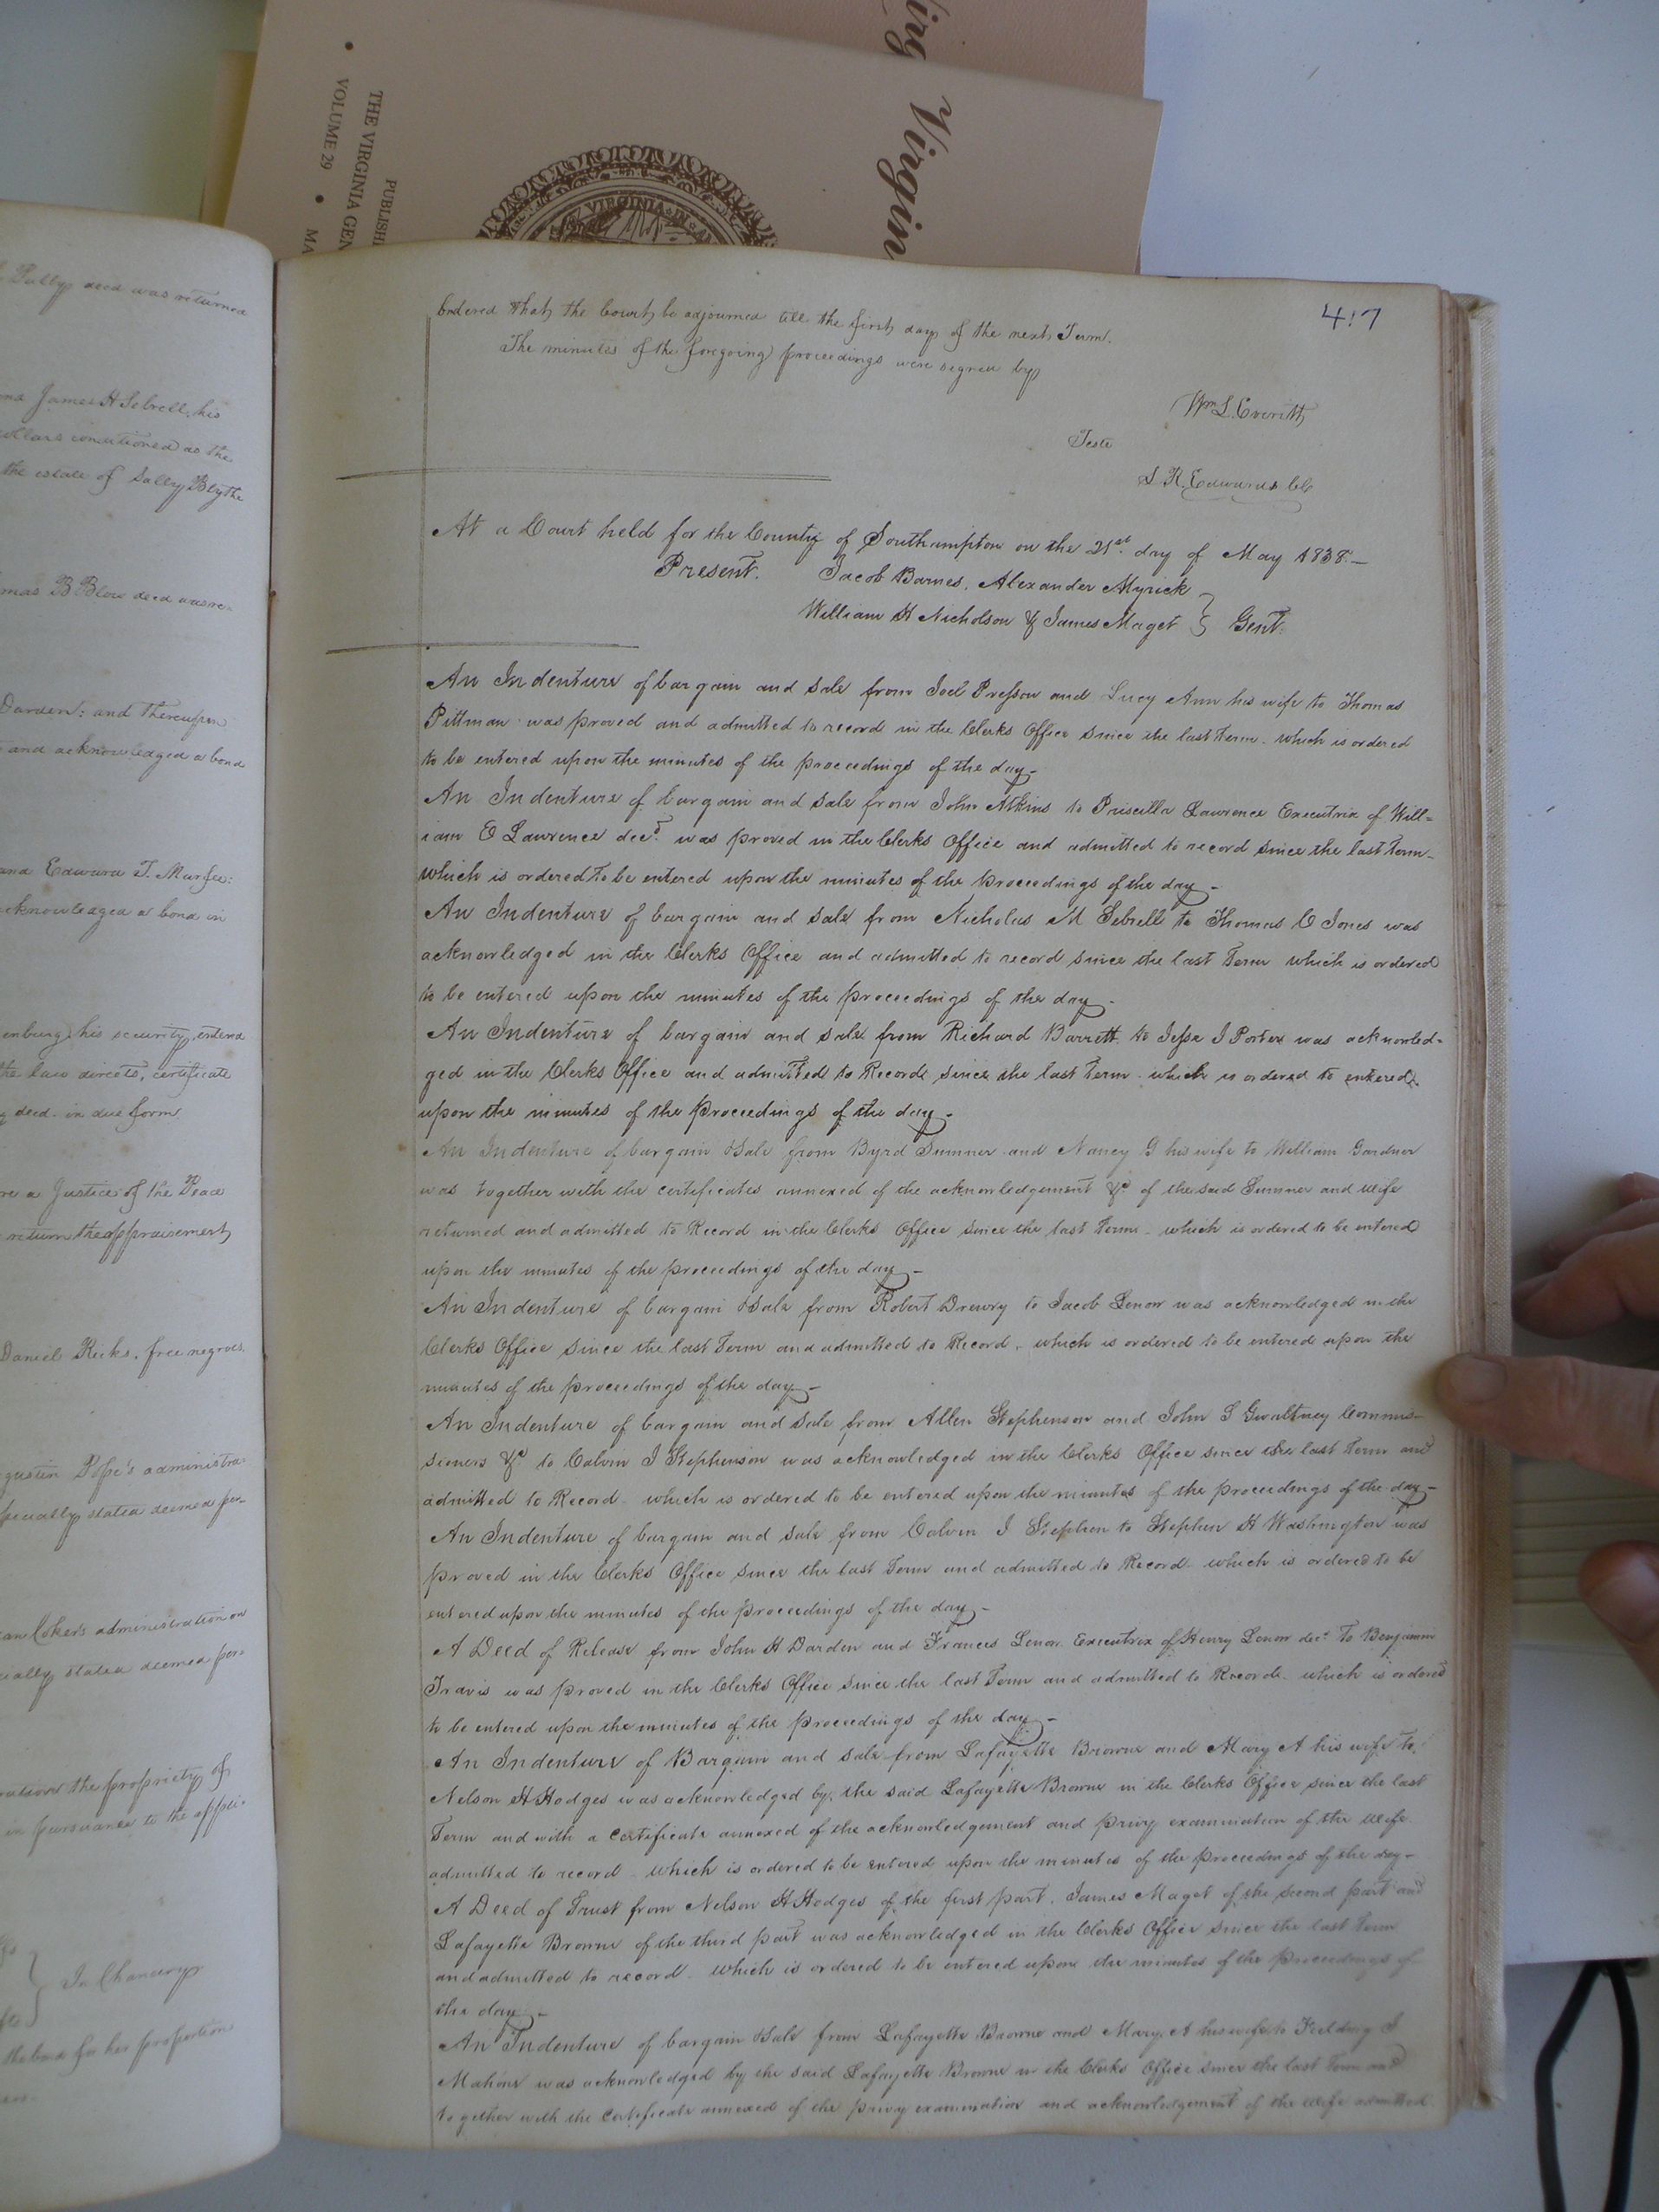 Virgin
PUBLISH
THE VIRGINIA GEN
VOLUME 29 • MA
VIRGINIA · IN · A
Sally decd was returned
James H Sebrell, his
dollars conditioned as the
the estate of Sally Blythe
mas B Blow decd was re-
Darden: and thereupon
and acknowledged a bond
and Edward T. Murfee:
acknowledged a bond in
enburg his security, entered
the law directs, certificate
decd. in due form.
a Justice of the Peace
return the appraisement
Daniel Ricks, free negroes.
gustin Pope's administra-
specially stated deemed pro-
Coker's administration on
cially stated deemed pro-
the propriety of
in pursuance to the appli-
In Chancery
the bond for his proportion
417
Ordered that the Court be adjourned till the first day of the next Term.
The minutes of the foregoing proceedings were signed by
Wm L. Everitt
Teste
S. R. Edwards Clk
At a Court held for the County of Southampton on the 21st. day of May 1838.—
Present. Jacob Barnes, Alexander Myrick
William H Nicholson & James Maget } Gent.
An Indenture of bargain and sale from Joel Presson and Lucy Ann his wife to Thomas
Pittman was proved and admitted to record in the Clerks Office since the last Term. which is ordered
to be entered upon the minutes of the proceedings of the day-
An Indenture of bargain and sale from John Atkins to Priscilla Lawrence Executrix of Will=
iam E Lawrence decd. was proved in the Clerks Office and admitted to record since the last Term-
which is ordered to be entered upon the minutes of the proceedings of the day-
An Indenture of bargain and sale from Nicholas M Sebrell to Thomas C Jones was
acknowledged in the Clerks Office and admitted to record since the last Term which is ordered
to be entered upon the minutes of the proceedings of the day-
An Indenture of bargain and sale from Richard Barrett to Jesse J Porter was acknowled-
ged in the Clerks Office and admitted to Record since the last Term. which is ordered to entered
upon the minutes of the proceedings of the day-
An Indenture of bargain & Sale from Byrd Sumner and Nancy G his wife to William Gardner
was together with the certificates annexed of the acknowledgement &c of the said Sumner and wife
returned and admitted to Record in the Clerks Office since the last Term- which is ordered to be entered
upon the minutes of the proceedings of the day-
An Indenture of bargain & Sale from Robert Drewry to Jacob Lenow was acknowledged in the
Clerks Office since the last Term and admitted to Record- which is ordered to be entered upon the
minutes of the proceedings of the day-
An Indenture of bargain and sale from Allen Stephenson and John S Gwaltney Commis-
sioners &c to Calvin J Stephenson was acknowledged in the Clerks Office since the last Term and
admitted to Record- which is ordered to be entered upon the minutes of the proceedings of the day-
An Indenture of bargain and sale from Calvin J Stephen to Stephen H Washington was
proved in the Clerks Office since the last Term and admitted to Record- which is ordered to be
entered upon the minutes of the proceedings of the day-
A Deed of Release from John H Darden and Frances Lenow Executrix of Henry Lenow decd. to Benjamin
Travis was proved in the Clerks Office since the last Term and admitted to Record- which is ordered
to be entered upon the minutes of the proceedings of the day-
An Indenture of Bargain and sale from Lafayette Browne and Mary A his wife to
Nelson H Hodges was acknowledged by the said Lafayette Browne in the Clerks Office since the last
Term and with a certificate annexed of the acknowledgement and privy examination of the wife
admitted to record- which is ordered to be entered upon the minutes of the proceedings of the day-
A Deed of Trust from Nelson H Hodges of the first part, James Maget of the second part and
Lafayette Browne of the third part was acknowledged in the Clerks Office since the last Term
and admitted to record- which is ordered to be entered upon the minutes of the proceedings of
the day-
An Indenture of bargain & Sale from Lafayette Browne and Mary A his wife to Fielding J
Mahone was acknowledged by the said Lafayette Browne in the Clerks Office since the last Term and
together with the certificate annexed of the privy examination and acknowledgement of the wife admitted